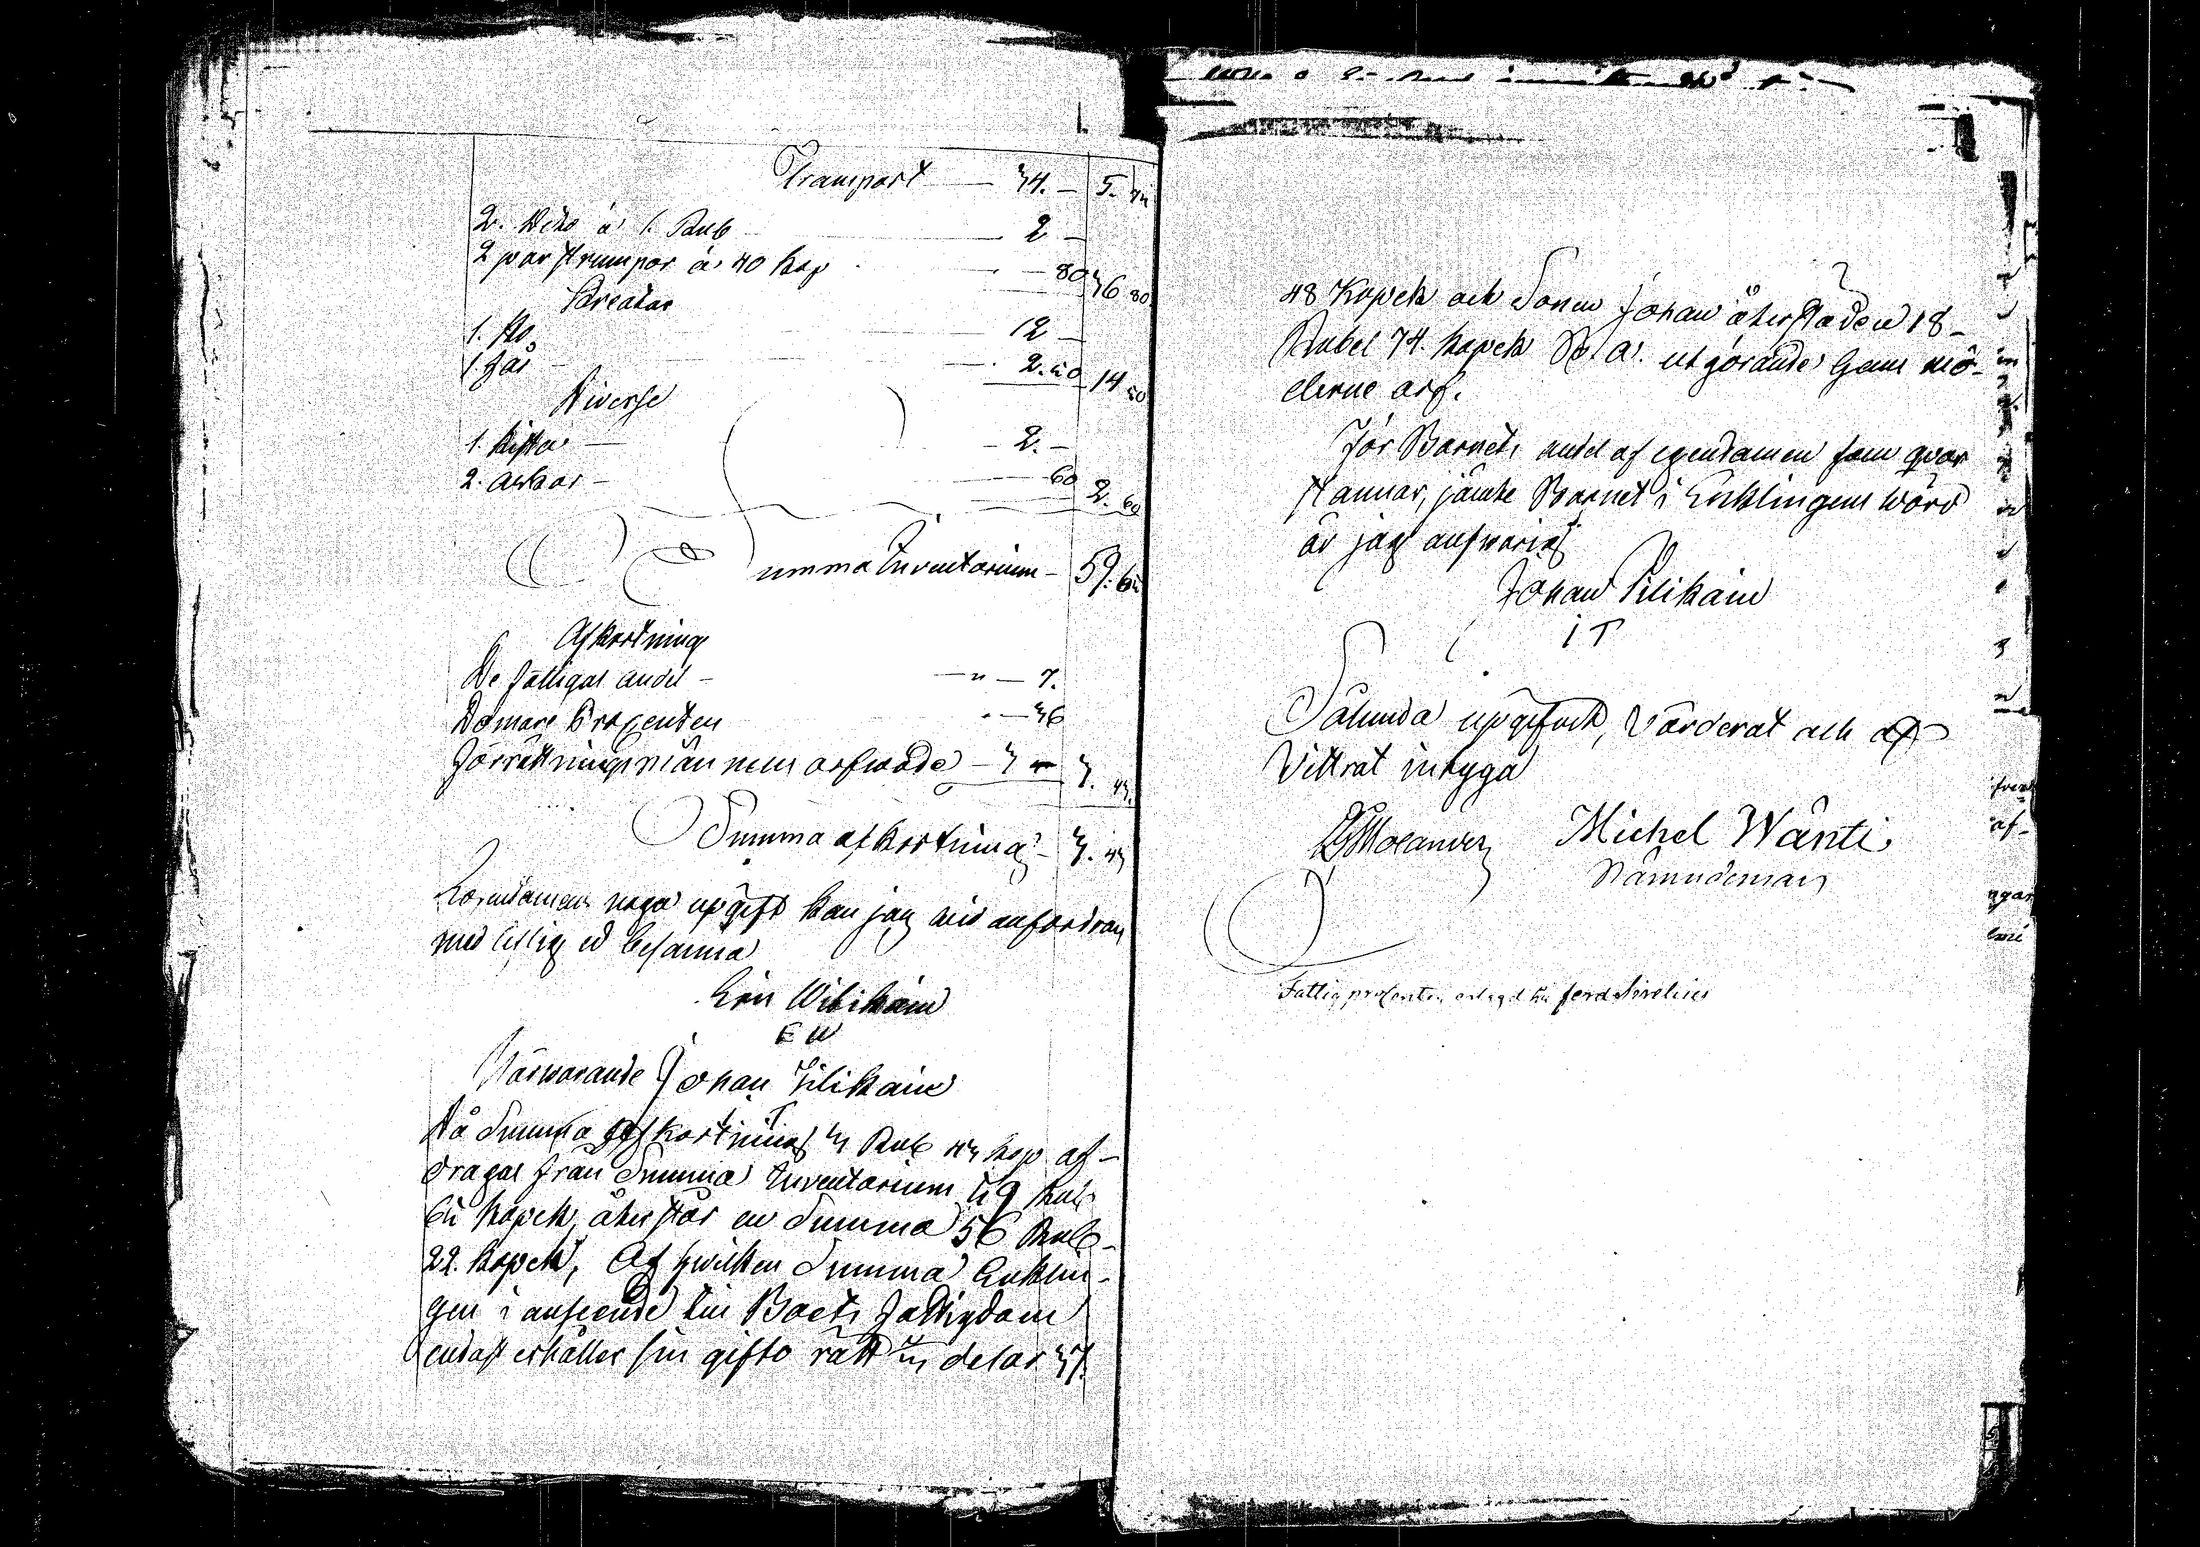 Transport — 34. — 5. 75
2. Dito á 1. Rub — 2 —
2 par strumpor á 40 kop — 80 36 80
Kreatur
1. Ko — 12 —
1. får — 2. 50 14 50
Diverse
1. kista — 2. —
2. askar — 60 2. 60
Summa Inventarium — 59. 65
Afkortning
De fattigas andel — " — 7.
Domare Procenten " — 36
Förrättningsmännens arfwode — 3 — 3. 43.
Summa afkortning — 3. 43
Egendomens noga upgift kan jag wid anfordran
med liflig ed besanna
Eric Wilikain
E W
Närwarande Johan Pilikain
Då Summa Afkortning 3 Rub 43 kop af-
dragas från Summa Inventarium 59 Rub
65 kopek, återstår en Summa 56 Rub-
22. kopek, Af hwilken Summa Enklin-
gen i anseende till Boets fattigdom
endast erhåller sin gifto rätt 2/3 delar 37.
48 kopek och Sonen Johan återstoden 18-
Rubel 74. kopek utgörande hans mö-
derne arf.
För Barnets andel af egendomen som qvar
stannar, jämte Barnet i Enklingens wård
är jag answarig
Johan Pilikain
I T
Sålunda upgifvit, Värderat och af
Vittrat intyga
Molander Michel Wänti
Nämndeman
Fattig procenten erlagd till ferd Sirelius